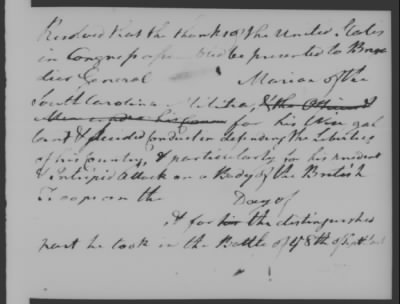 Resolved that the thanks of the United States
in Congress assembled be presented to Briga
dier General Marian of the
South Carolina Militia, & the Officers &
Men under his Com for his Wise gal
lant & decided Conduct in defending the Liberties
of his Country, & particularly for his prudent
& intripid Attack on a Body of the British
Troops on the Day of
& for his the distinguished
part he took in the Battle of ye 8th of Sept last